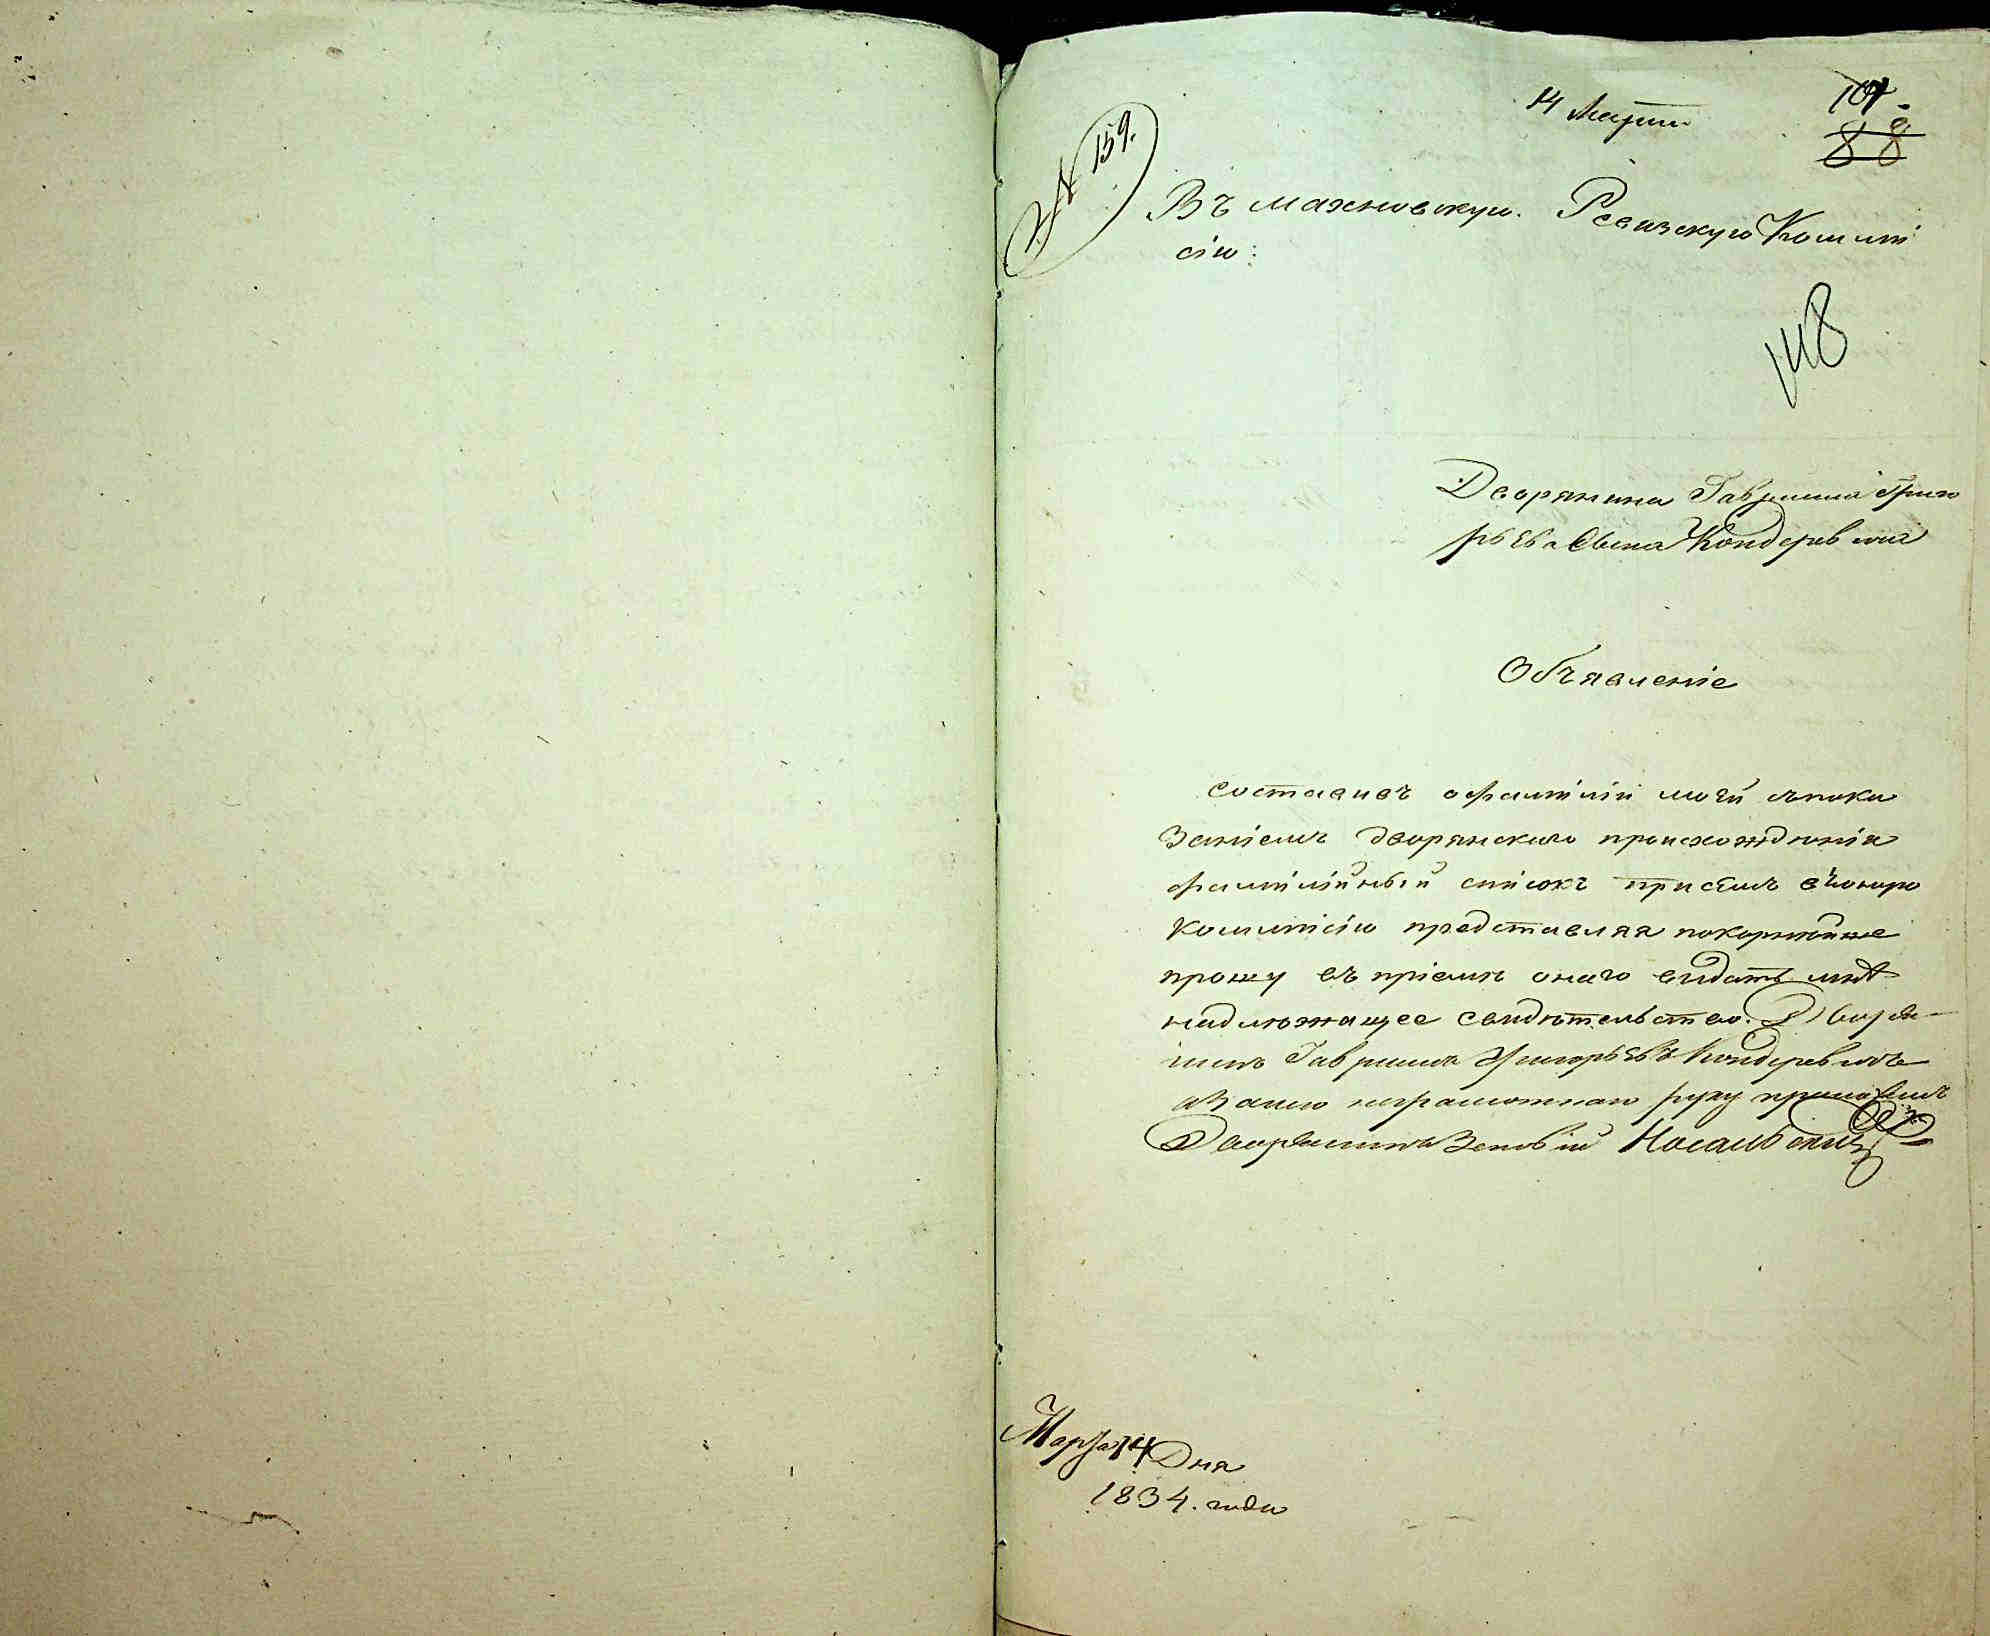 14 марта
107.
88
№ 159.
Въ махновскую. Ревизскую Коммі
сію:
148
Дворянина Гаврила Григо
рьева Сына Кондерев
Объявленіе
составивъ о фаміліи моей съ пока
заніемъ дворянскаго происхожденія
фамілійный списокъ при семъ въ оную
Коммісію представляя покорнейше
прошу въ пріеме онаго видать мнѣ
надлежащее свидѣтельство. Дворя-
нинъ Гаврила Григорьевъ
а за него неграмотнаго руку приложилъ
Дворянинъ Зеновій
Марта 14 Дня
1834. года